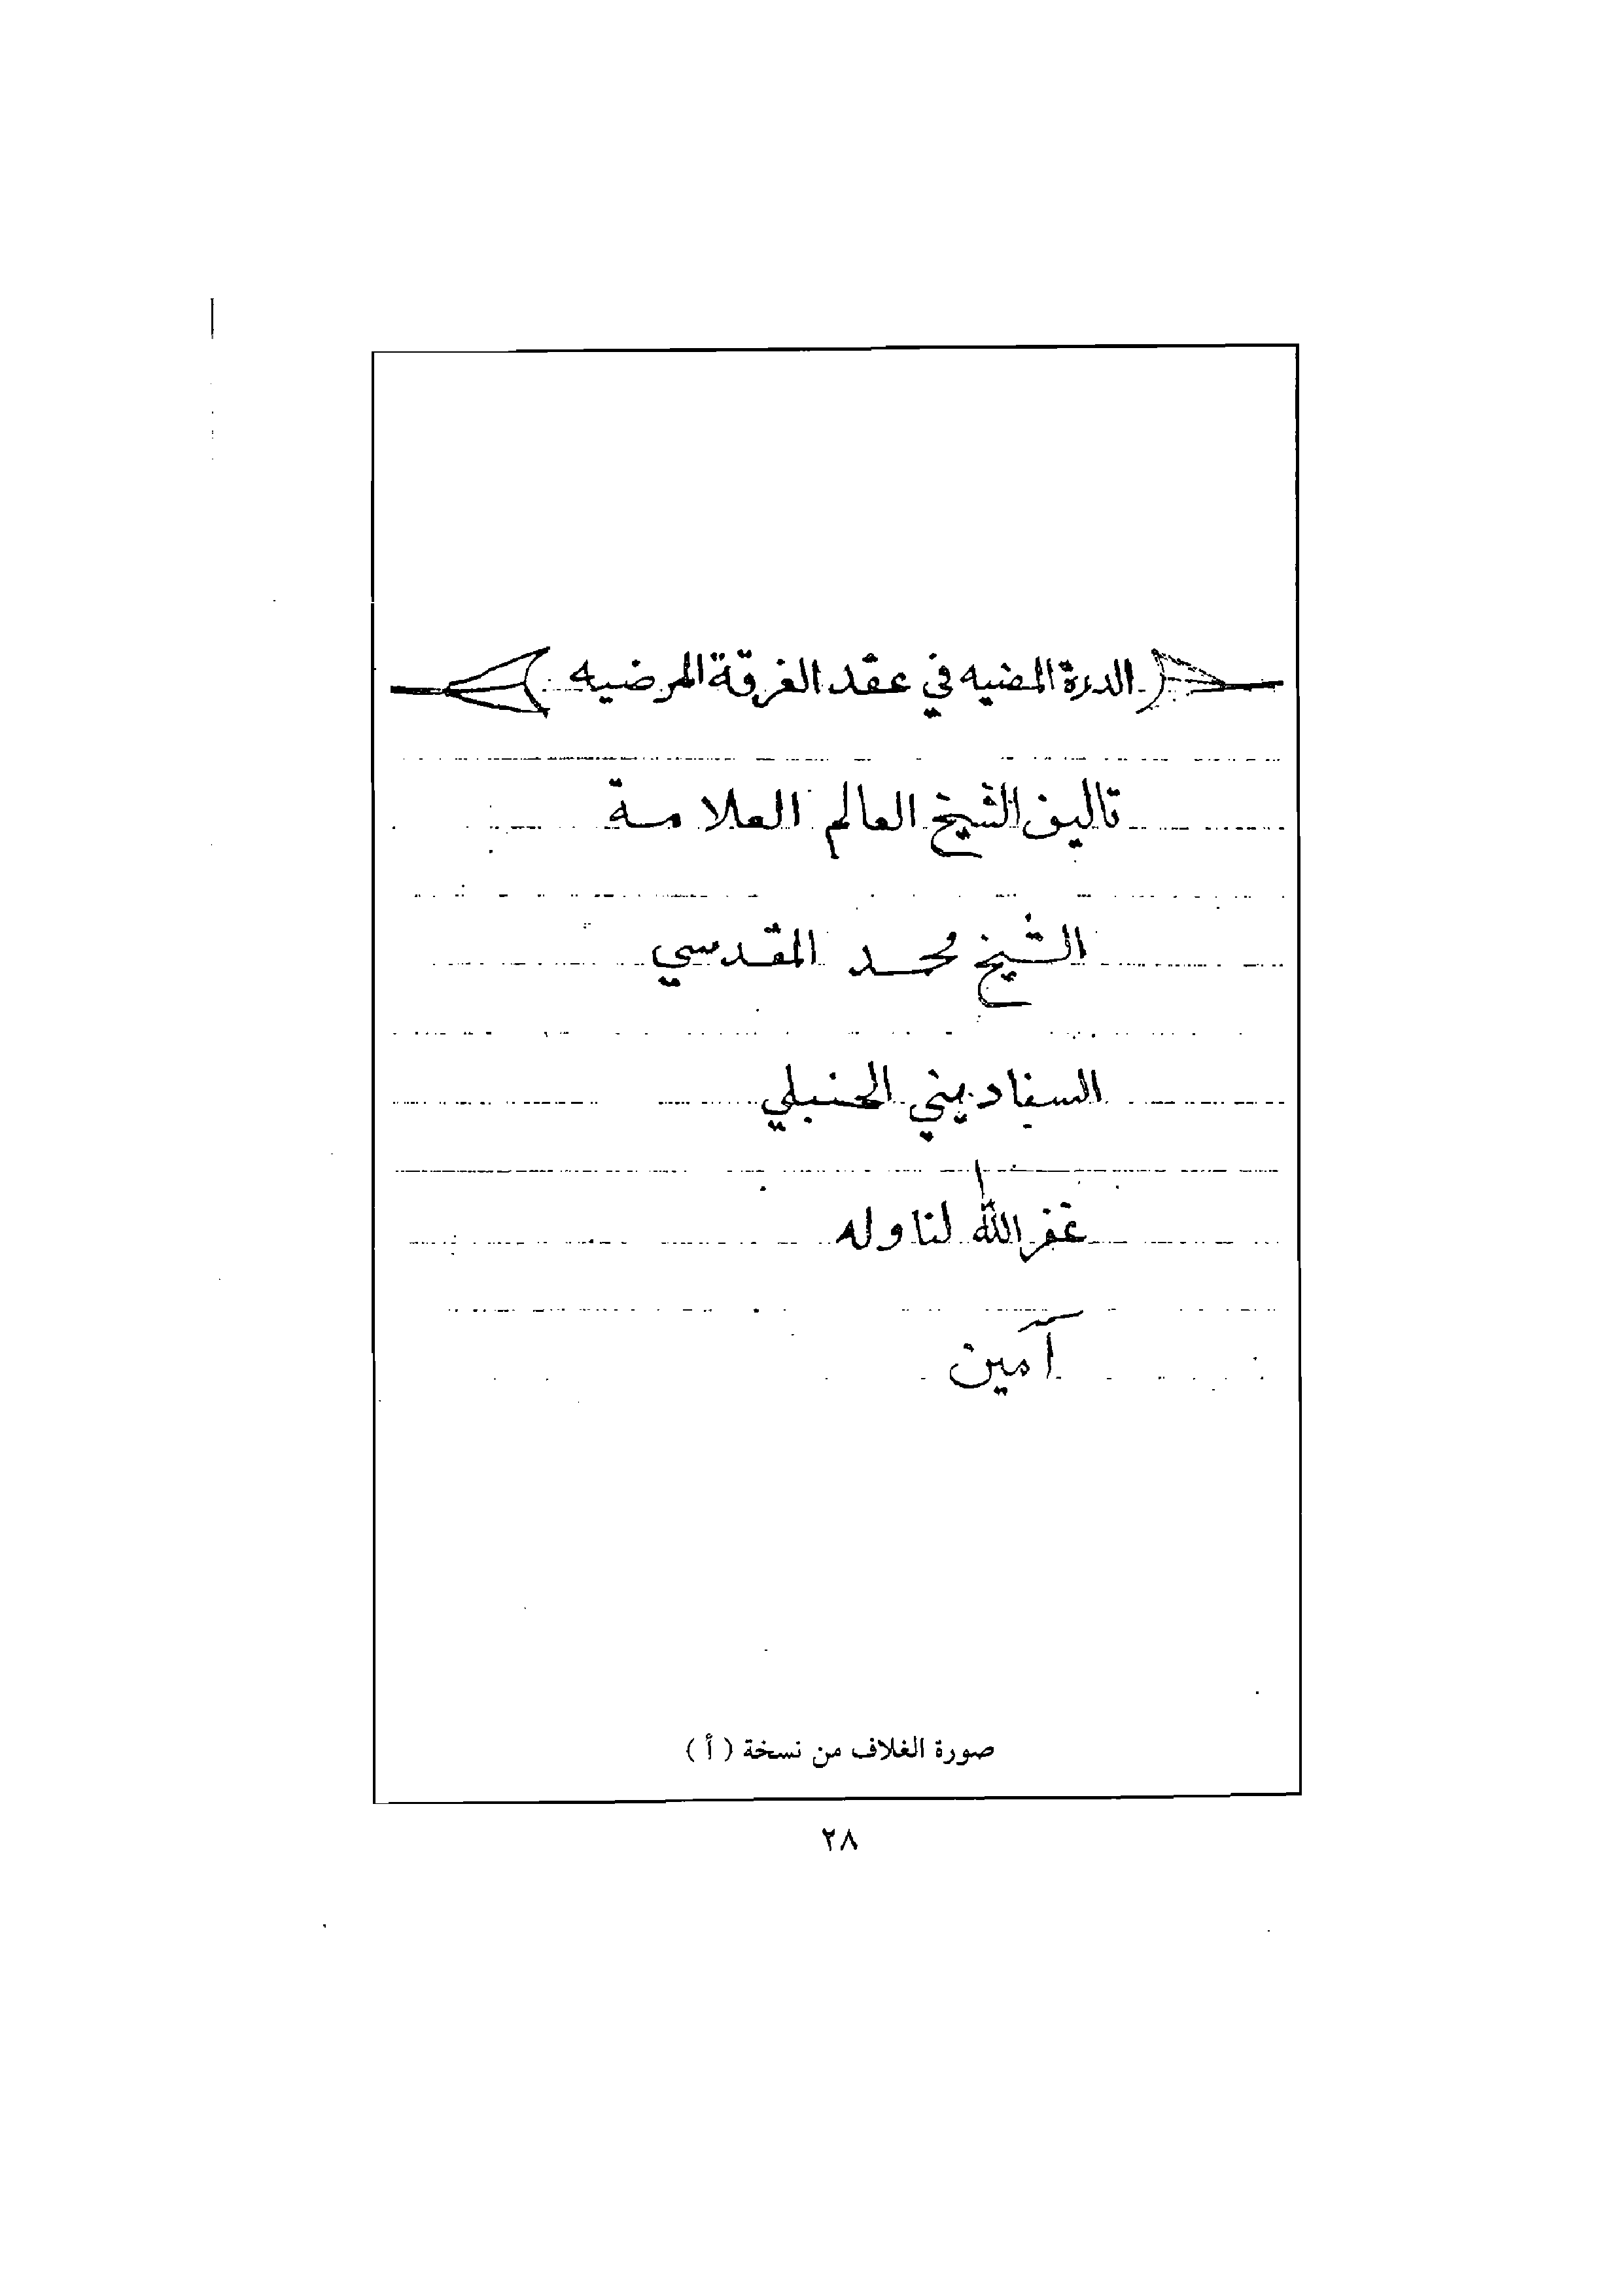 الدرة المضيه في عقد الفرقة المرضيه
تاليف الشيخ العالم العلامة
الشيخ محمد المقدسي
السفاريني الحنبلي
غفر الله لنا وله
آمين
صورة الغلاف من نسخة ( أ )
٢٨